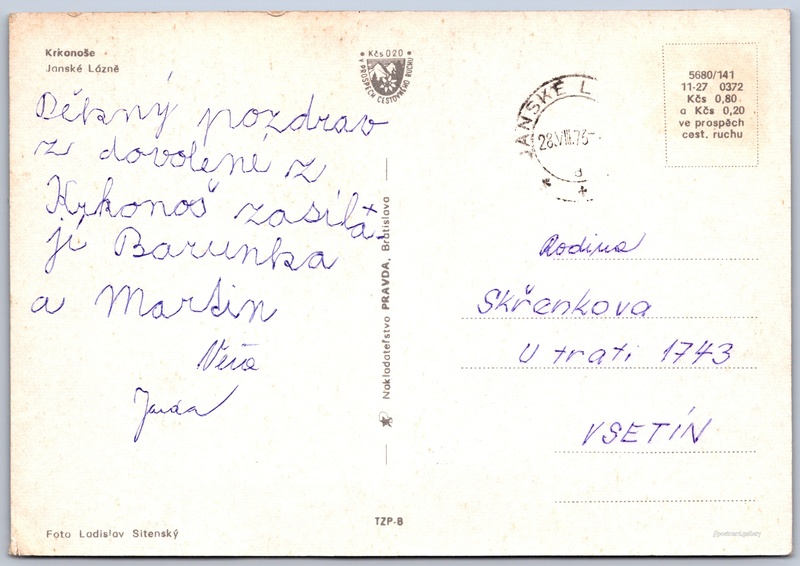 Krkonoše
Janské Lázně
Kčs 020
V PROSPĚCH CESTOVNÉHO RUCHU
Děkný pozdrav
z dovolené z
Krkonoš zasíla
jí Barunka
a Martin
Věra
Jarda
Foto Ladislav Sitenský
Nakladateľstvo PRAVDA, Bratislava
TZP-8
JANSKÉ L
28.VIII.73
5680/141
11-27 0372
Kčs 0,80
a Kčs 0,20
ve prospěch
cest. ruchu
Rodina
Skřenkova
U trati 1743
VSETÍN